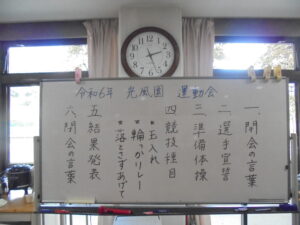 令和6年 光風園 運動会
一、開会の言葉
二、選手宣誓
三、準備体操
四、競技種目
★玉入れ
★輪っかリレー
★落とさずあげて
五、結果発表
六、閉会の言葉